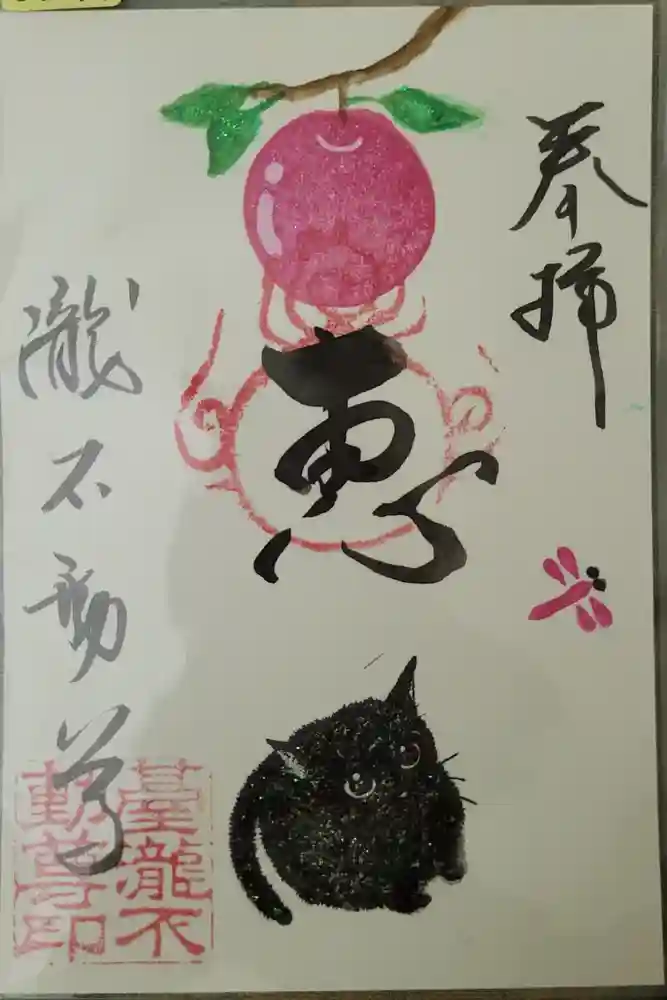 奉拝
恵
瀧不動尊
臺瀧不
動尊印